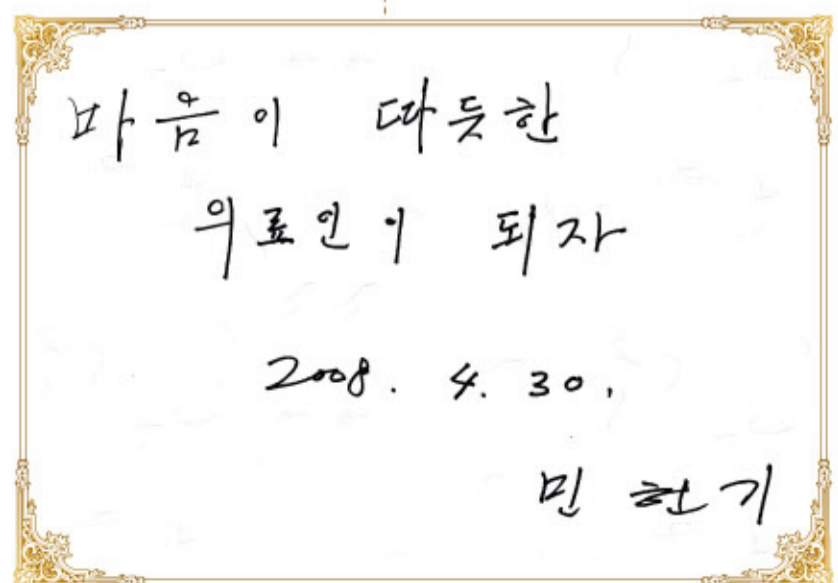 마음이 따듯한
의료인이 되자
2008. 4. 30.
민헌기